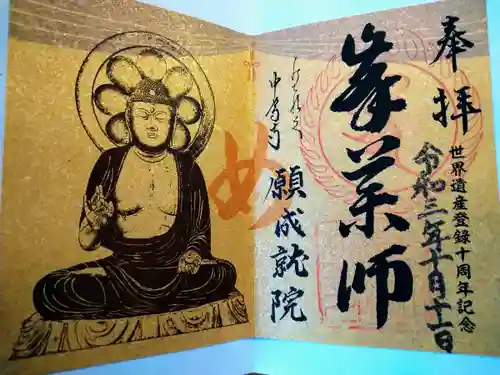 奉拝
世界遺産登録十周年記念
令和三年十月十一日
峯薬師
中尊寺
願成就院